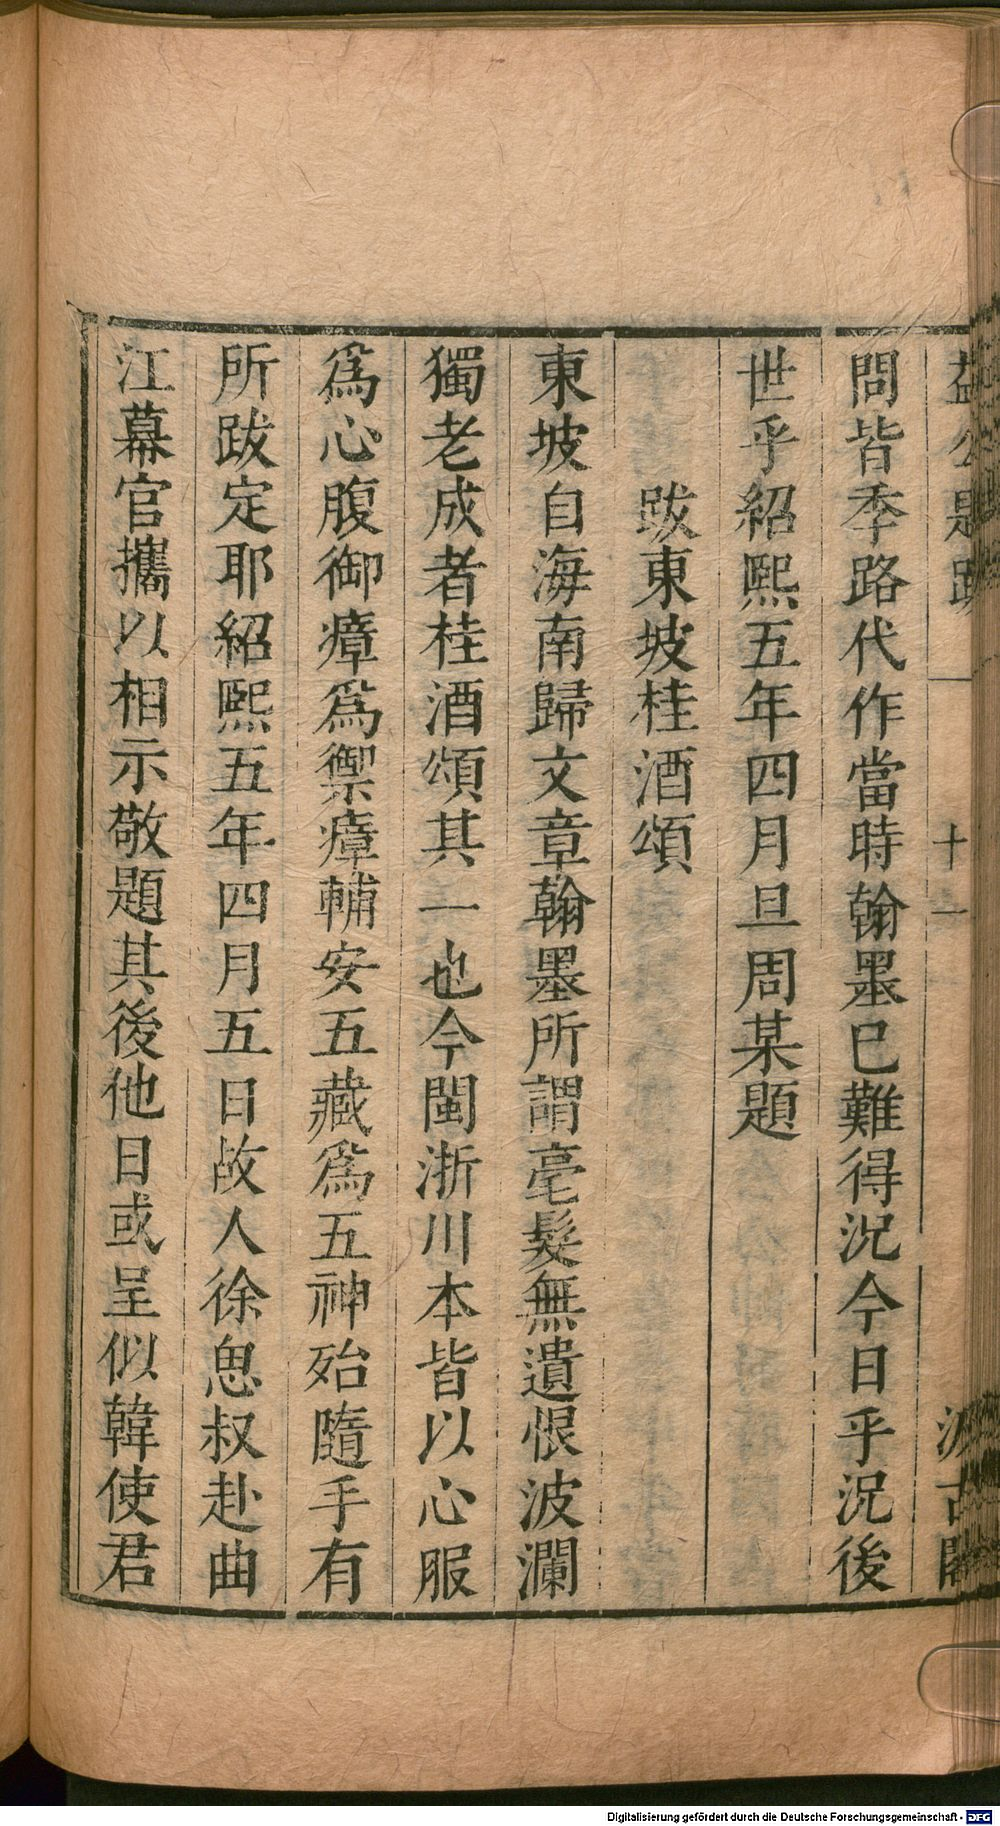 益公題跋 十一 汲古閣
問皆季路代作當時翰墨巳難得況今日乎況後
世乎紹熙五年四月旦周某題
跋東坡桂酒頌
東坡自海南歸文章翰墨所謂毫髮無遺恨波瀾
獨老成者桂酒頌其一也今閩浙川本皆以心服
爲心腹御瘴爲禦瘴輔安五藏爲五神殆隨手有
所跋定耶紹熙五年四月五日故人徐思叔赴曲
江幕官攜以相示敬題其後他日或呈似韓使君
Digitalisierung gefördert durch die Deutsche Forschungsgemeinschaft - DFG